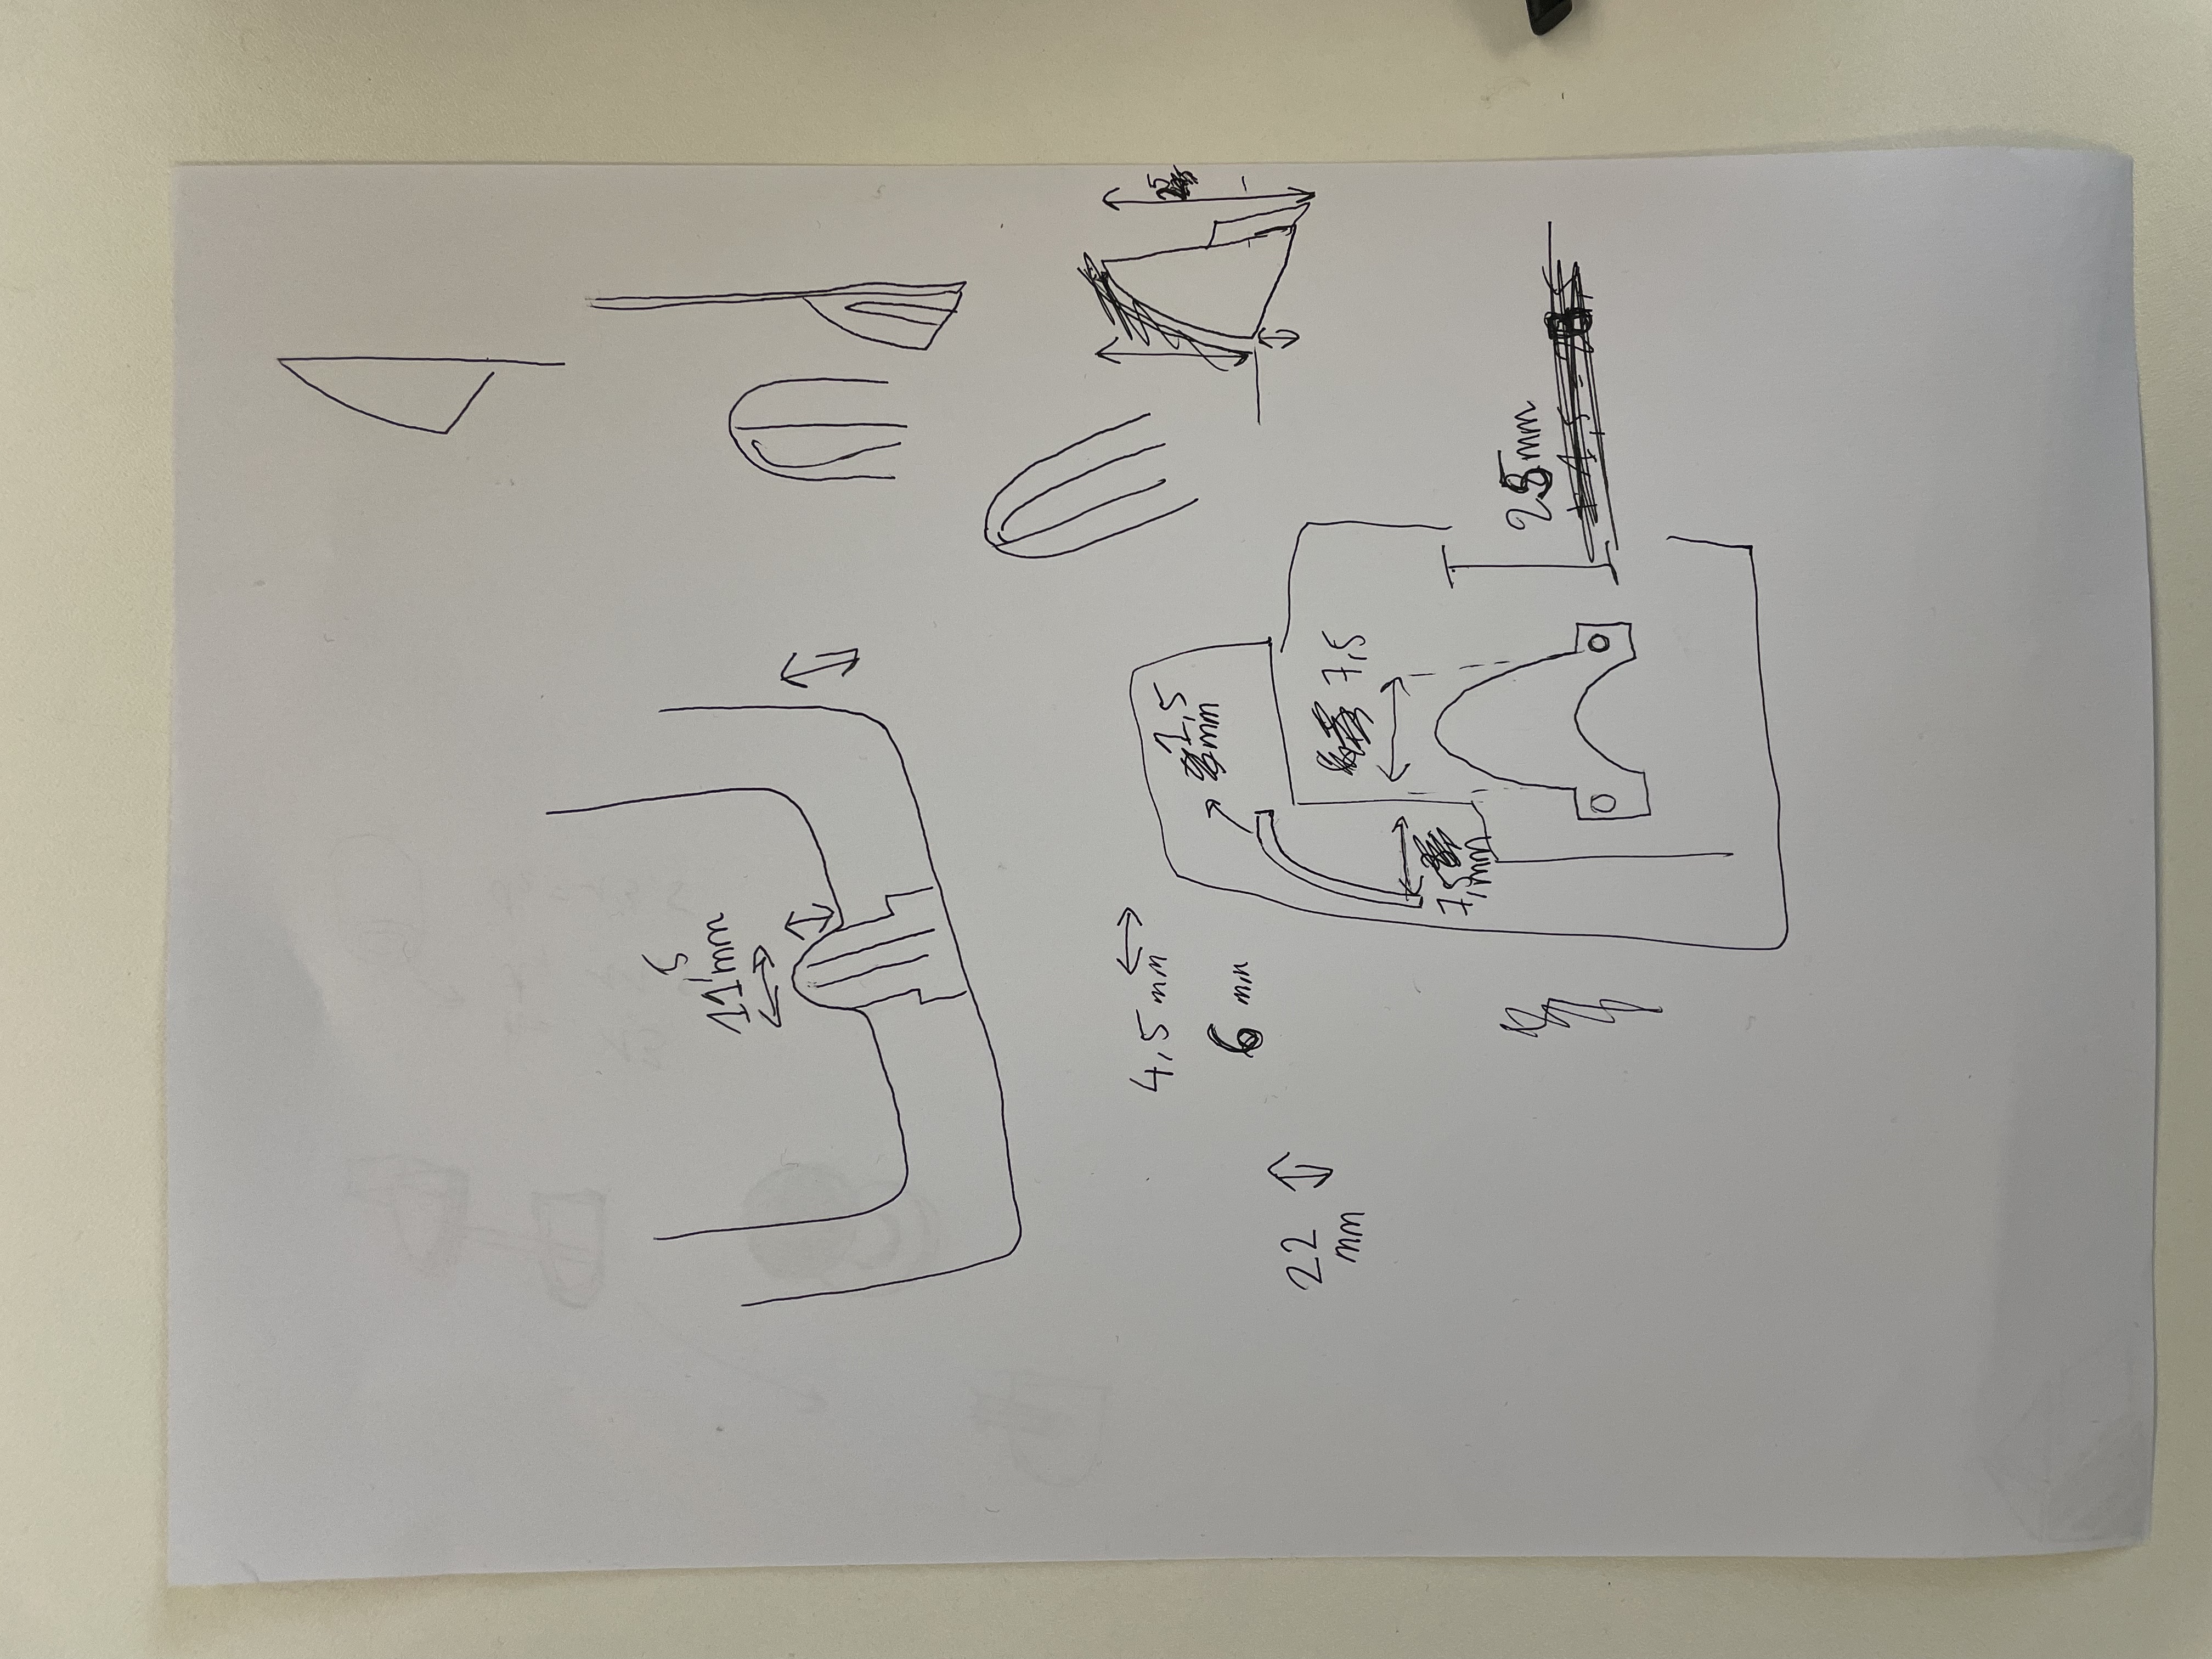 11,5
mm
4,5 mm
1,5
mm
6 mm
22
mm
7,5
7,5
mm
25 mm
25